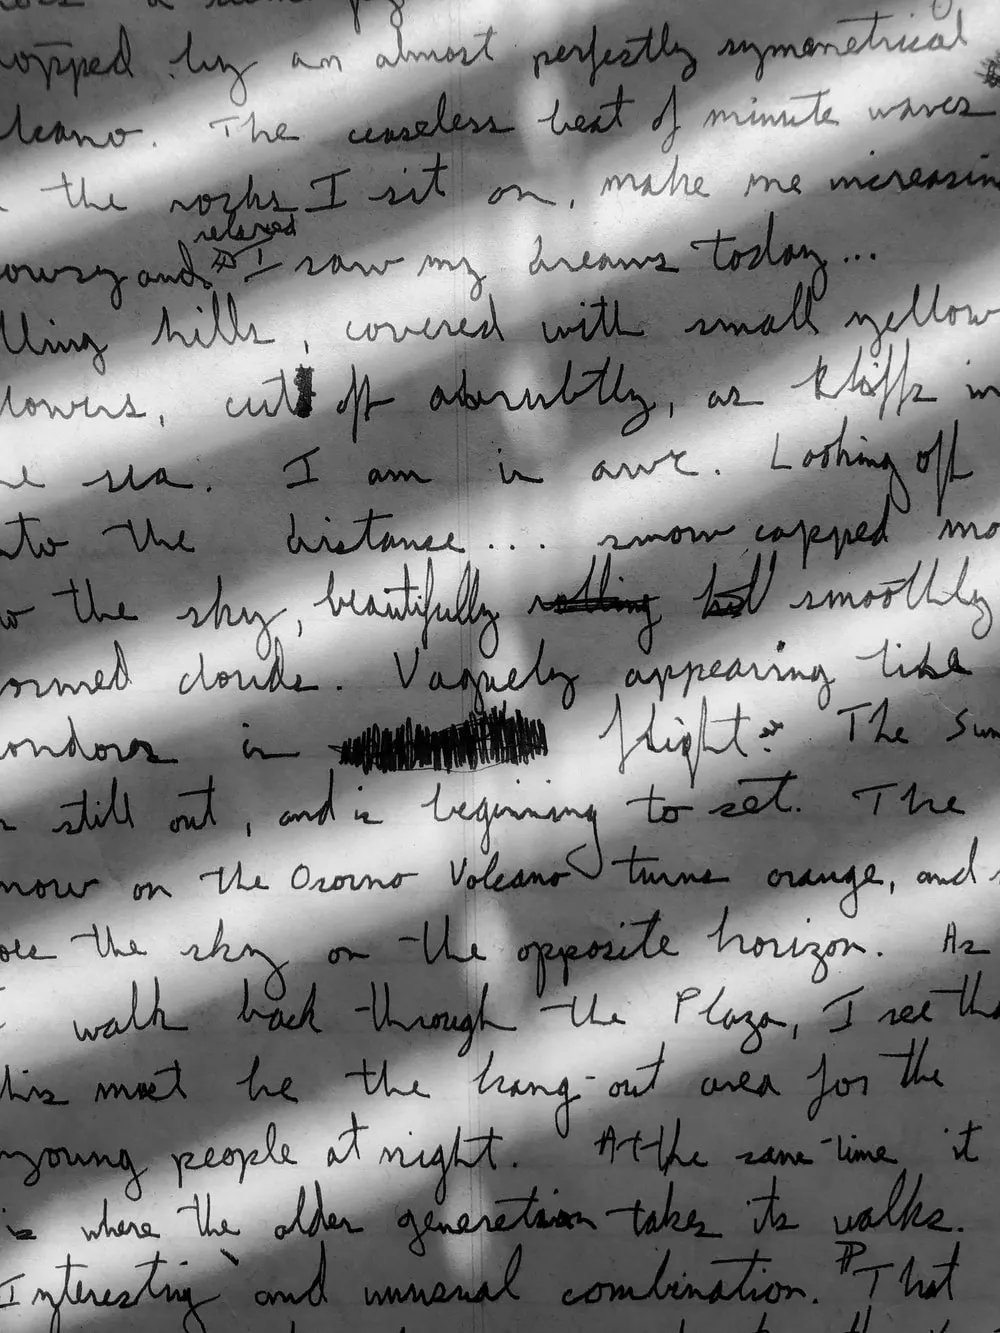 opped by an almost perfectly symmetrical
lcano. The ceaseless beat of minute waves
the rocks I sit on, make me increasin
relaxed
owsy and I saw my dreams today...
lling hills, covered with small yellow
lowers, cut off abrubtly, as kliffs in
e sea. I am in awe. Looking off
nto the distance... snow capped mo
o the sky, beautifully rolling smoothly
ormed clouds. Vaguely appearing like
ondors in flight. The Sun
still out, and is beginning to set. The
now on the Osorno Volcano turns orange, and s
oes the sky on the opposite horizon. As
I walk back through the Plaza, I see tha
his must be the hang-out area for the
young people at night. At the same-time it
is where the older generation takes its walks.
Interesting and unusual combination. That